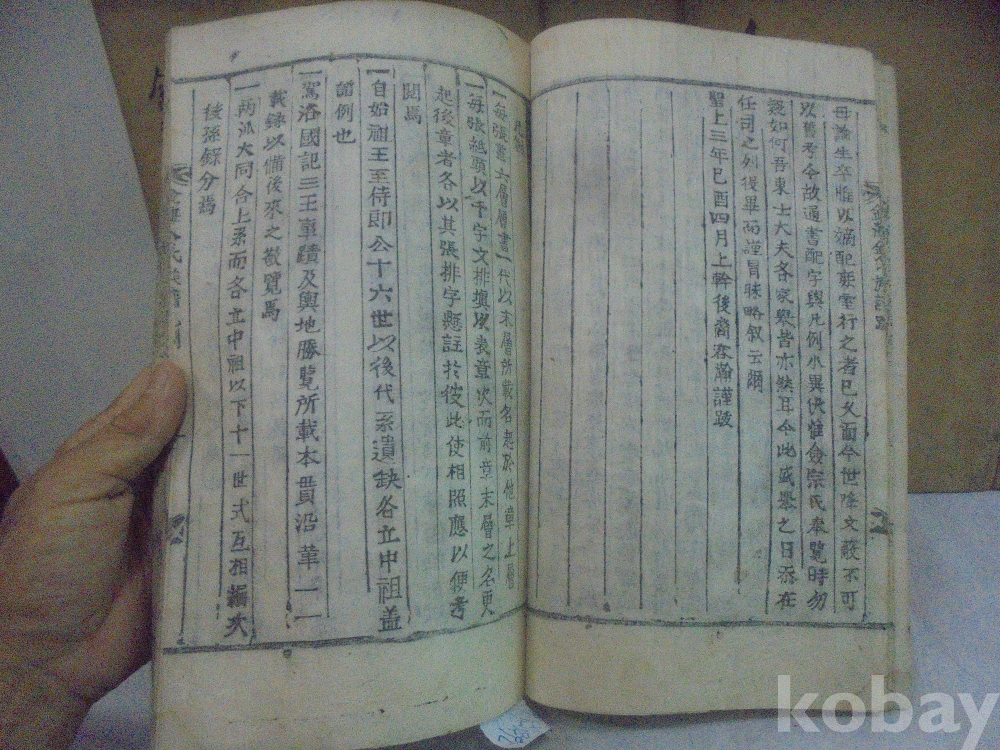 毋論生卒惟以嫡配
行之者已久而今世降文蔽不可
以舊考今故通書配字與凡例小異伏惟僉宗氏奉覽時勿
疑如何吾東士大夫各家擧皆亦然耳今此盛擧之日忝在
任司之列役畢而謹冒昧略叙云爾
聖上三年己酉四月上幹後裔容瀚謹跋
凡例
一每張畫六層層書一代以末層所載名起於他章上層
一每張紙頭以千字文排塡以表章次而前章末層之名更
起後章者各以其張排字懸註於彼此使相照應以便考
閱焉
一自始祖王至侍郎公十六世以後代系遺缺各立中祖盖
譜例也
一駕洛國記三王事蹟及輿地勝覽所載本貫沿革一一
載錄以備後來之觀覽焉
一兩派大同合上系而各立中祖以下十一世式互相編次
後孫錄分焉
kobay